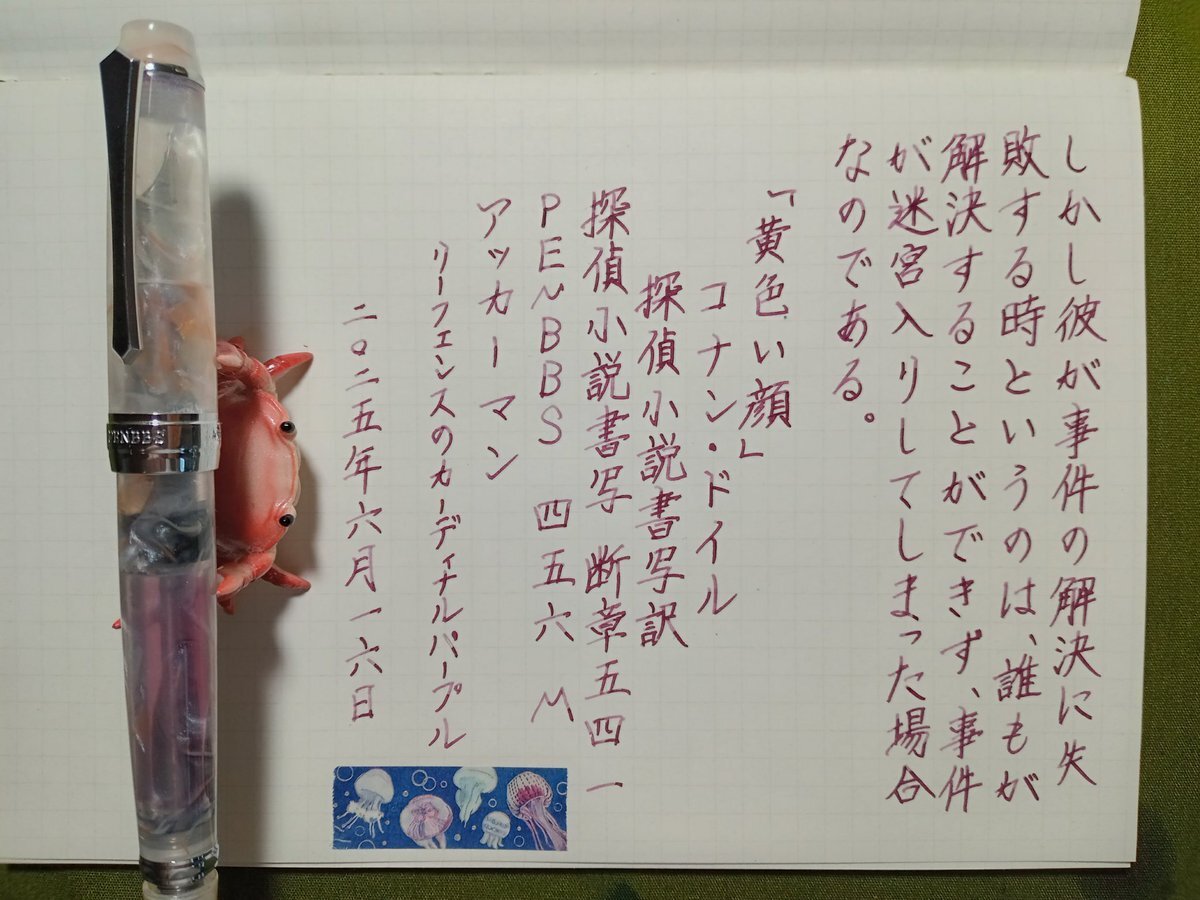 しかし彼が事件の解決に失
敗する時というのは、誰もが
解決することができず、事件
が迷宮入りしてしまった場合
なのである。
「黄色い顔」
コナン・ドイル
探偵小説書写訳
探偵小説書写 断章五四一
PENBBS 四五六 M
アッカーマン
リーフェンスのカーディナルパープル
二〇二五年六月一六日
PENBBS